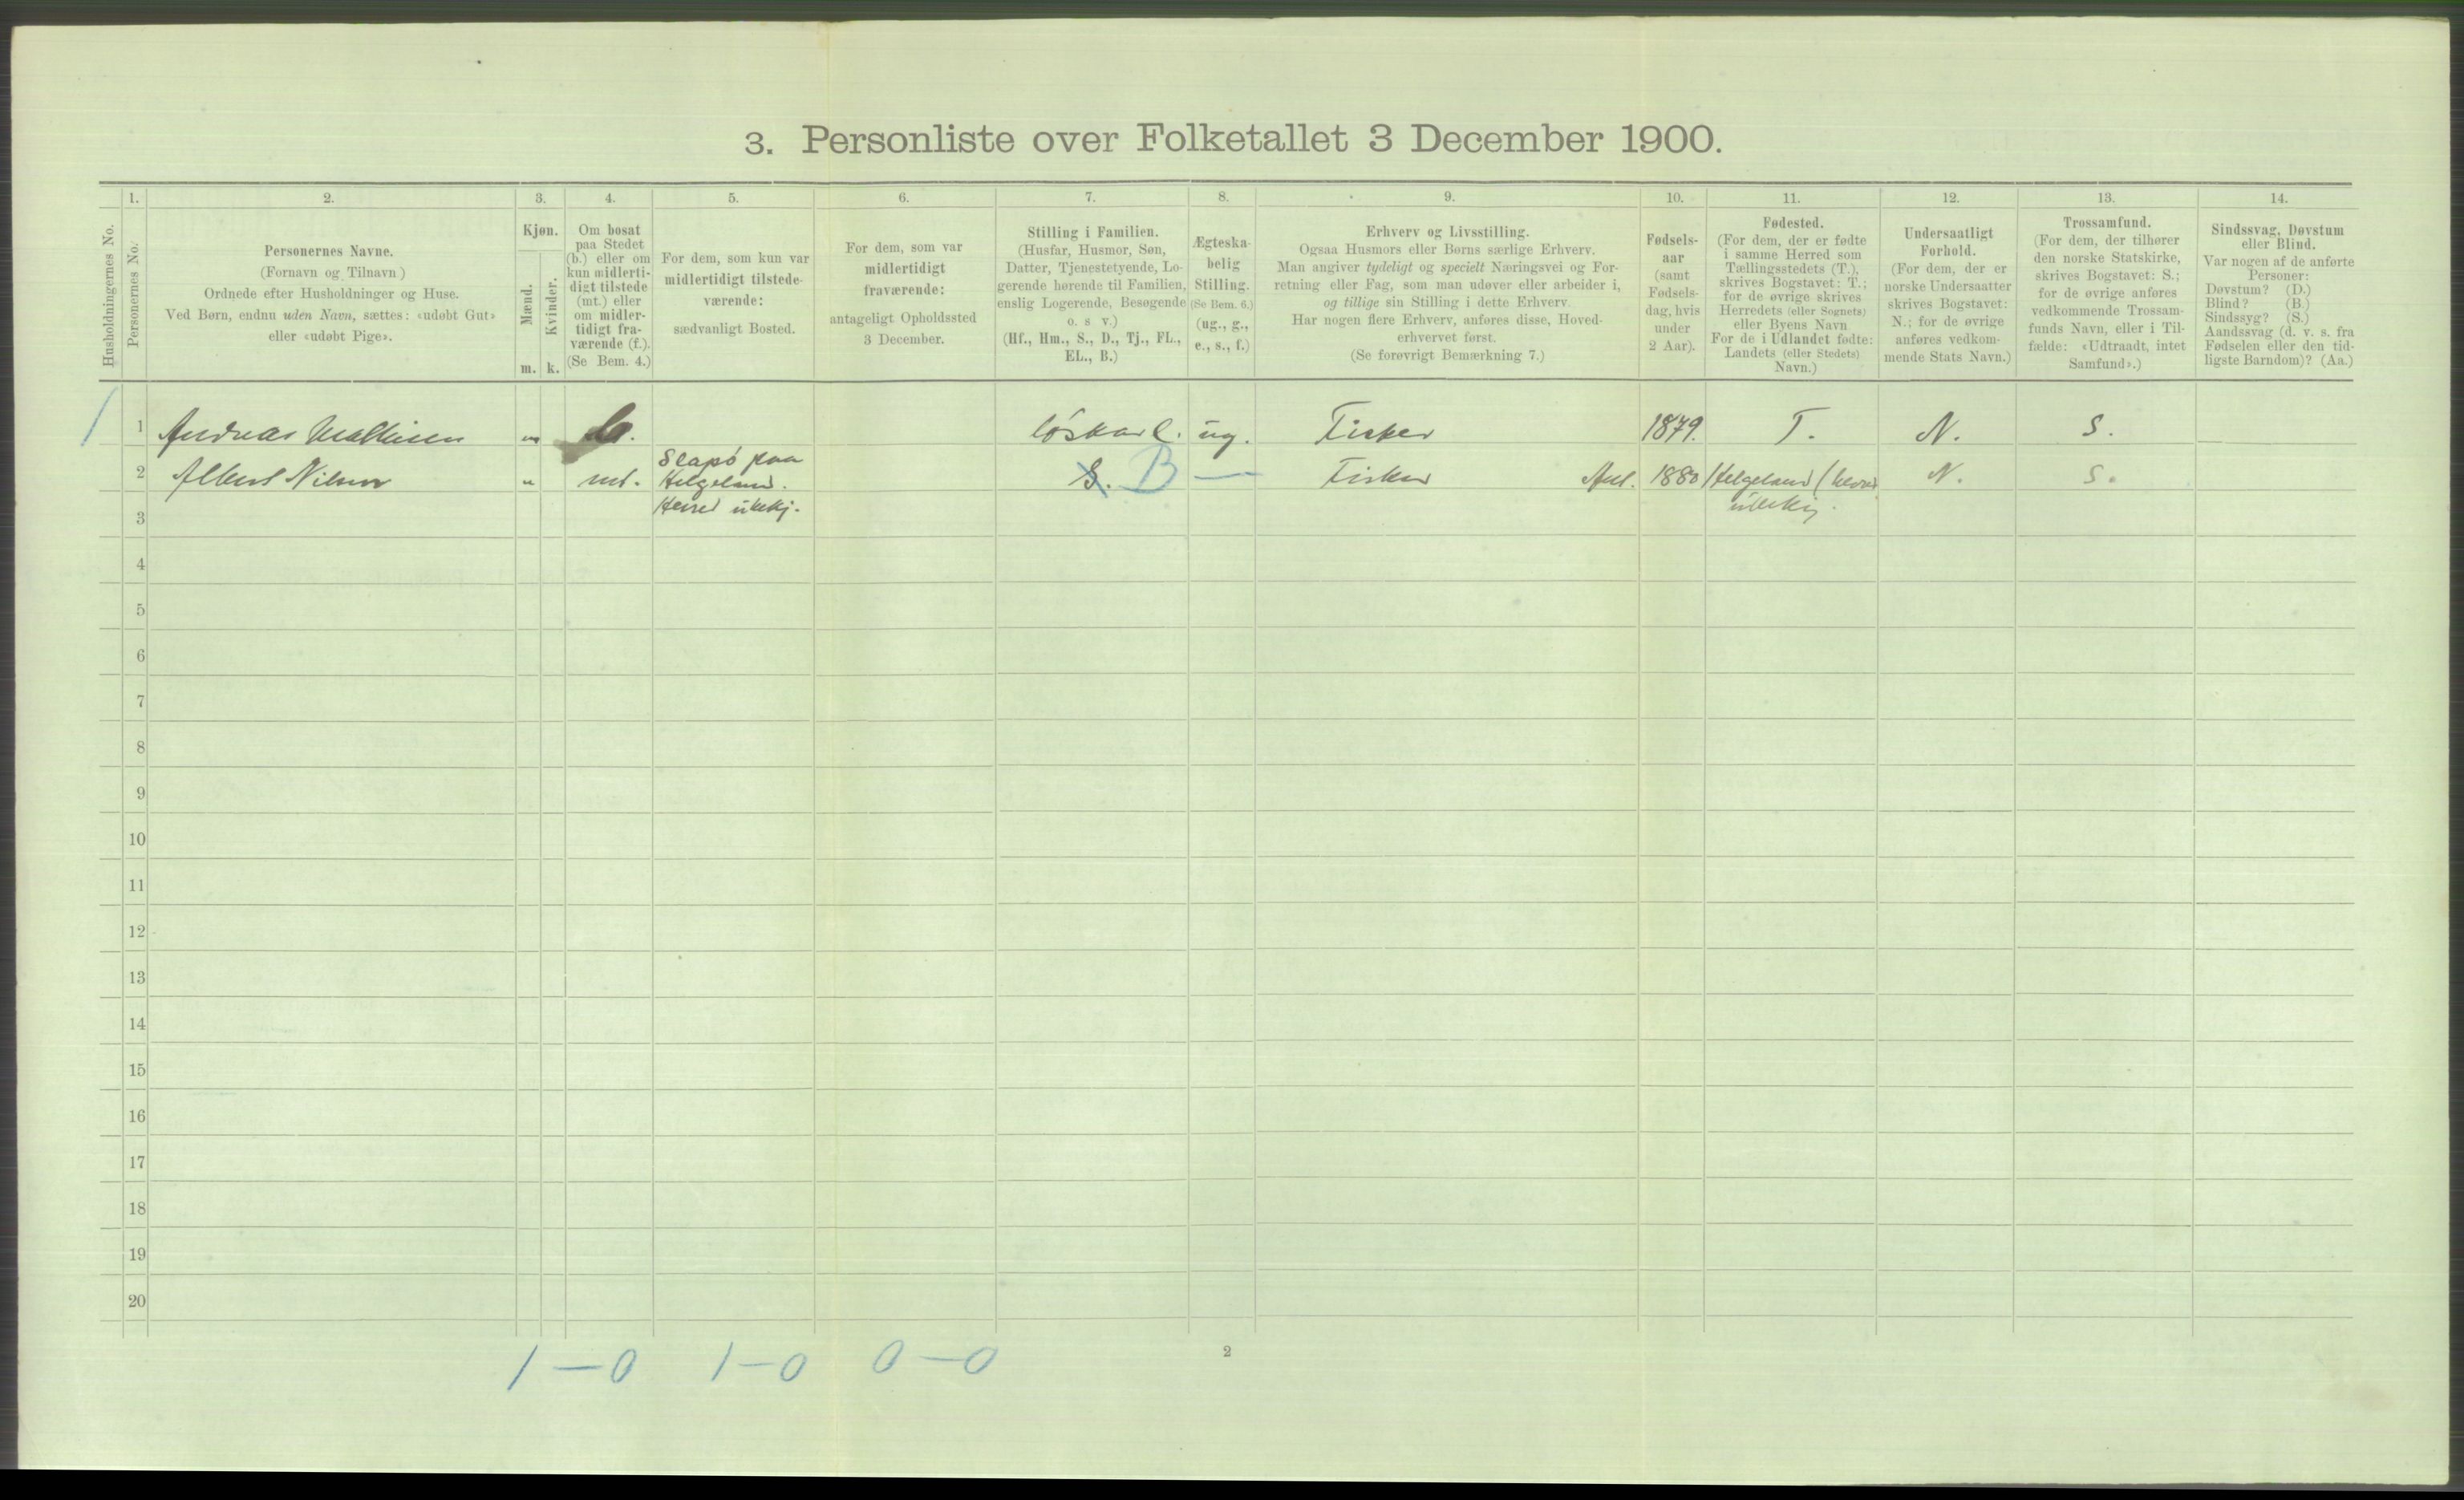 3. Personliste over Folketallet 3 December 1900.
1. 2. 3. 4. 5. 6. 7. 8. 9. 10. 11. 12. 13. 14.
Husholdningernes No.
Personernes No.
Personernes Navne.
(Fornavn og Tilnavn)
Ordnede efter Husholdninger og Huse.
Ved Børn, endnu uden Navn, sættes: «udøbt Gut»
eller «udøbt Pige».
Kjøn.
Mænd.
Kvinder.
m. k.
Om bosat
paa Stedet
(b.) eller om
kun midlerti-
digt tilstede
(mt.) eller
om midler-
tidigt fra-
værende (f.).
(Se Bem. 4.)
For dem, som kun var
midlertidigt tilstede-
værende:
sædvanligt Bosted.
For dem, som var
midlertidigt
fraværende:
antageligt Opholdssted
3 December.
Stilling i Familien.
(Husfar, Husmor, Søn,
Datter, Tjenestetyende, Lo-
gerende hørende til Familien,
enslig Logerende, Besøgende
o. s v.)
(Hf., Hm., S., D., Tj., FL.,
EL., B.)
Ægteska-
belig
Stilling.
(Se Bem. 6.)
(ug., g.,
e., s., f.)
Erhverv og Livsstilling.
Ogsaa Husmors eller Børns særlige Erhverv.
Man angiver tydeligt og specielt Næringsvei og For-
retning eller Fag, som man udøver eller arbeider i,
og tillige sin Stilling i dette Erhverv.
Har nogen flere Erhverv, anføres disse, Hoved-
erhvervet først.
(Se forøvrigt Bemærkning 7.)
Fødsels-
aar
(samt
Fødsels-
dag, hvis
under
2 Aar).
Fødested.
(For dem, der er fødte
i samme Herred som
Tællingsstedets (T.),
skrives Bogstavet: T.;
for de øvrige skrives
Herredets (eller Sognets)
eller Byens Navn.
For de i Udlandet fødte:
Landets (eller Stedets)
Navn.)
Undersaatligt
Forhold.
(For dem, der er
norske Undersaatter
skrives Bogstavet:
N.; for de øvrige
anføres vedkom-
mende Stats Navn.)
Trossamfund.
(For dem, der tilhører
den norske Statskirke,
skrives Bogstavet: S.;
for de øvrige anføres
vedkommende Trossam-
funds Navn, eller i Til-
fælde: «Udtraadt, intet
Samfund».)
Sindssvag, Døvstum
eller Blind.
Var nogen af de anførte
Personer:
Døvstum? (D.)
Blind? (B.)
Sindssyg? (S.)
Aandssvag (d. v. s. fra
Fødselen eller den tid-
ligste Barndom)? (Aa.)
1 1 Andreas m b. løskarl. ug. Fisker 1879. T. N. S.
2 Albert Nilsen mt. paa Helgeland. S. B — Fisker 1880 Helgeland N. S.
Herred
3
4
5
6
7
8
9
10
11
12
13
14
15
16
17
18
19
20
1—0 1—0 0—0
2